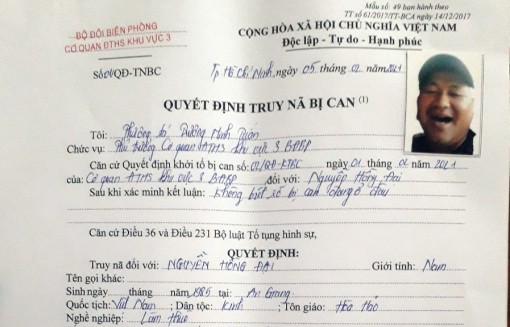 Mẫu số: 49 ban hành theo
TT số 61/2017/TT-BCA ngày 14/12/2017
BỘ ĐỘI BIÊN PHÒNG
CƠ QUAN ĐTHS KHU VỰC 3
CỘNG HÒA XÃ HỘI CHỦ NGHĨA VIỆT NAM
Độc lập - Tự do - Hạnh phúc
Số: 01/QĐ-TNBC
Tp Hồ Chí Minh, ngày 05 tháng 02 năm 2021
QUYẾT ĐỊNH TRUY NÃ BỊ CAN (1)
Tôi: Thượng tá Dương Minh
Chức vụ: Phó trưởng Cơ quan ĐTHS khu vực 3 BĐBP
Căn cứ Quyết định khởi tố bị can số: 02/QĐ-KTBC ngày 01 tháng 02 năm 2021
của: Cơ quan ĐTHS khu vực 3 BĐBP đối với: Nguyễn Hồng Đại
Sau khi xác minh kết luận: Không biết rõ bị can đang ở đâu
Căn cứ Điều 36 và Điều 231 Bộ luật Tố tụng hình sự,
QUYẾT ĐỊNH:
Truy nã đối với: NGUYỄN HỒNG ĐẠI Giới tính: Nam
Tên gọi khác:
Sinh ngày tháng năm 1985 tại: An Giang
Quốc tịch: Việt Nam; Dân tộc: Kinh; Tôn giáo: Hòa Hảo
Nghề nghiệp: Làm thuê